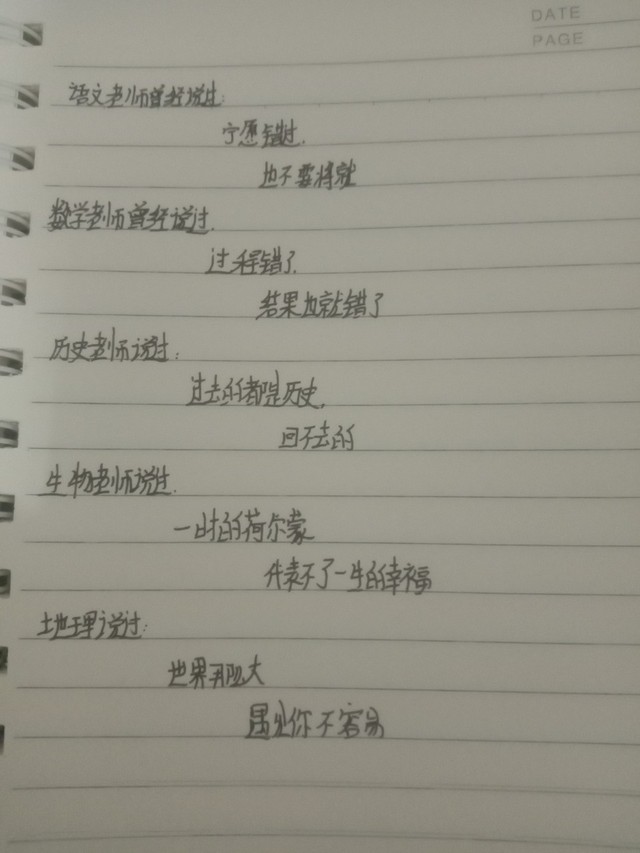 DATE
PAGE
语文老师曾经说过：
宁愿错过，
也不要将就
数学老师曾经说过，
过程错了，
结果也就错了
历史老师说过：
过去的都是历史，
回不去的
生物老师说过，
一时的荷尔蒙
代表不了一生的幸福
地理说过：
世界那么大
遇见你不容易